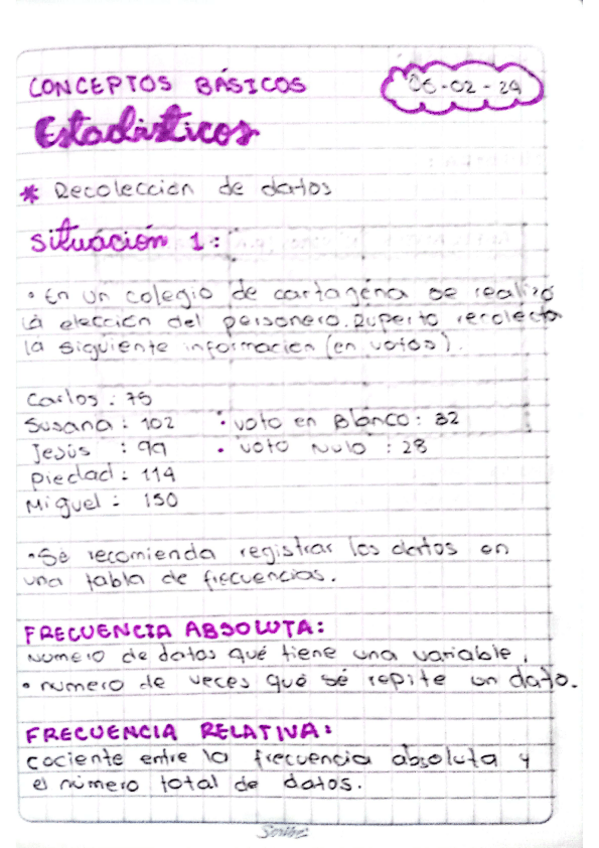 CONCEPTOS BÁSICOS
06-02-24
Estadísticos
* Recolección de datos
situación 1:
• En un colegio de cartagena se realizó
la elección del personero. Ruperto recolecta
la siguiente información (en votos).
Carlos: 75
Susana: 102 • voto en Blanco: 32
Jesús : 99 • voto Nulo : 28
Piedad: 114
Miguel: 150
• Sé recomienda registrar los datos en
una tabla de frecuencias.
FRECUENCIA ABSOLUTA:
Número de datos qué tiene una variable,
• numero de veces qué sé repite un dato.
FRECUENCIA RELATIVA:
cociente entre la frecuencia absoluta y
el número total de datos.
Scribe